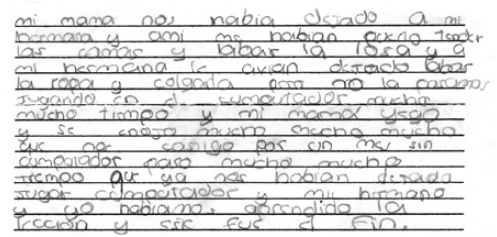 mi mama nos habia dejado a mi
hermana y ami me habian
las camas y labar la losa y a
mi hermana le avian dejado labar
la ropa y colgarla pero no la pasamos
jugando en el cumputador mucho
mucho tiempo y mi mama
y se enojo mucho mucho mucho
que nos castigo por un mes sin
cumputador paso mucho mucho
tiempo que ya nos habian dejado
jugar computador y mi hermano
y yo habiamos aprendido la
leccion y ese fue el fin.